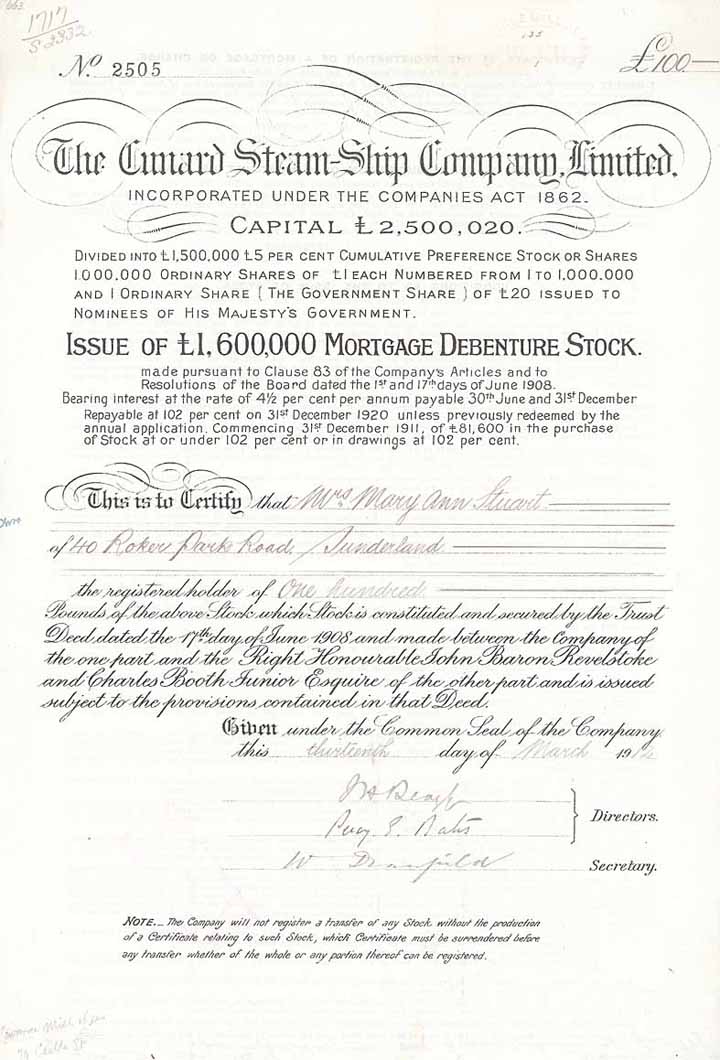 1717
S 2332
135
No. 2505
£100
The Cunard Steam-Ship Company, Limited.
INCORPORATED UNDER THE COMPANIES ACT 1862.
CAPITAL £2,500,020.
DIVIDED INTO £1,500,000 £5 PER CENT CUMULATIVE PREFERENCE STOCK OR SHARES
1.000.000 ORDINARY SHARES OF £1 EACH NUMBERED FROM 1 TO 1,000.000
AND 1 ORDINARY SHARE (THE GOVERNMENT SHARE) OF £20 ISSUED TO
NOMINEES OF HIS MAJESTY'S GOVERNMENT.
ISSUE OF £1,600,000 MORTGAGE DEBENTURE STOCK.
made pursuant to Clause 83 of the Company's Articles and to
Resolutions of the Board dated the 1st and 17th days of June 1908.
Bearing interest at the rate of 4½ per cent per annum payable 30th June and 31st December
Repayable at 102 per cent on 31st December 1920 unless previously redeemed by the
annual application. Commencing 31st December 1911, of £81,600 in the purchase
of Stock at or under 102 per cent or in drawings at 102 per cent.
This is to Certify that Mrs Mary Ann Stuart
of 40 Roker Park Road, Sunderland
the registered holder of One hundred
Pounds of the above Stock which Stock is constituted and secured by the Trust
Deed dated the 17th day of June 1908 and made between the Company of
the one part and the Right Honourable John Baron Revelstoke
and Charles Booth Junior Esquire of the other part and is issued
subject to the provisions contained in that Deed.
Given under the Common Seal of the Company
this thirteenth day of March 191
Directors.
Percy E. Bates
W Dranfield Secretary.
NOTE._ The Company will not register a transfer of any Stock without the production
of a Certificate relating to such Stock, which Certificate must be surrendered before
any transfer whether of the whole or any portion thereof can be registered.